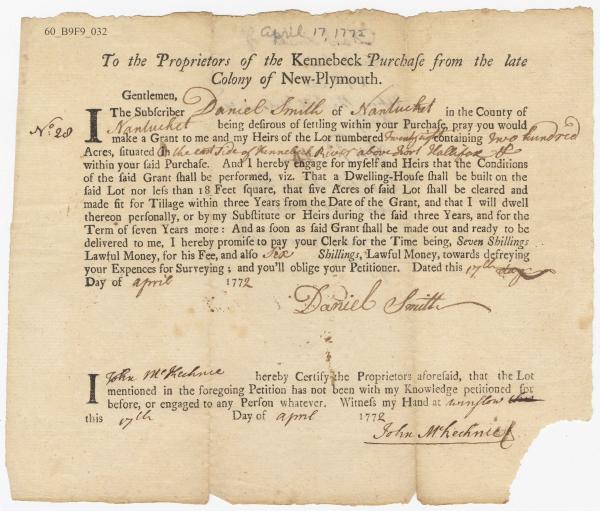 60_B9F9_032
April 17, 1772
To the Proprietors of the Kennebeck Purchaſe from the late
Colony of New-Plymouth.
Gentlemen,
No. 28
I The Subſcriber Daniel Smith of Nantucket in the County of
Nantucket being deſirous of ſettling within your Purchaſe, pray you would
make a Grant to me and my Heirs of the Lot numbered Twenty eight containing Two hundred
Acres, ſituated On the east Side of Kennebek River above Fort Hallifax
within your ſaid Purchaſe. And I hereby engage for myſelf and Heirs that the Conditions
of the ſaid Grant ſhall be performed, viz. That a Dwelling-Houſe ſhall be built on the
ſaid Lot not leſs than 18 Feet ſquare, that five Acres of ſaid Lot ſhall be cleared and
made fit for Tillage within three Years from the Date of the Grant, and that I will dwell
thereon perſonally, or by my Subſtitute or Heirs during the ſaid three Years, and for the
Term of ſeven Years more: And as ſoon as ſaid Grant ſhall be made out and ready to be
delivered to me, I hereby promiſe to pay your Clerk for the Time being, Seven Shillings
Lawful Money, for his Fee, and alſo Six Shillings, Lawful Money, towards defreying
your Expences for Surveying; and you'll oblige your Petitioner. Dated this 17th day
Day of april 1772
Daniel Smith
I John McKechnie hereby Certify the Proprietors aforeſaid, that the Lot
mentioned in the foregoing Petition has not been with my Knowledge petitioned for
before, or engaged to any Perſon whatever. Witneſs my Hand at winslow
this 17th Day of april 1772
John McKechnie